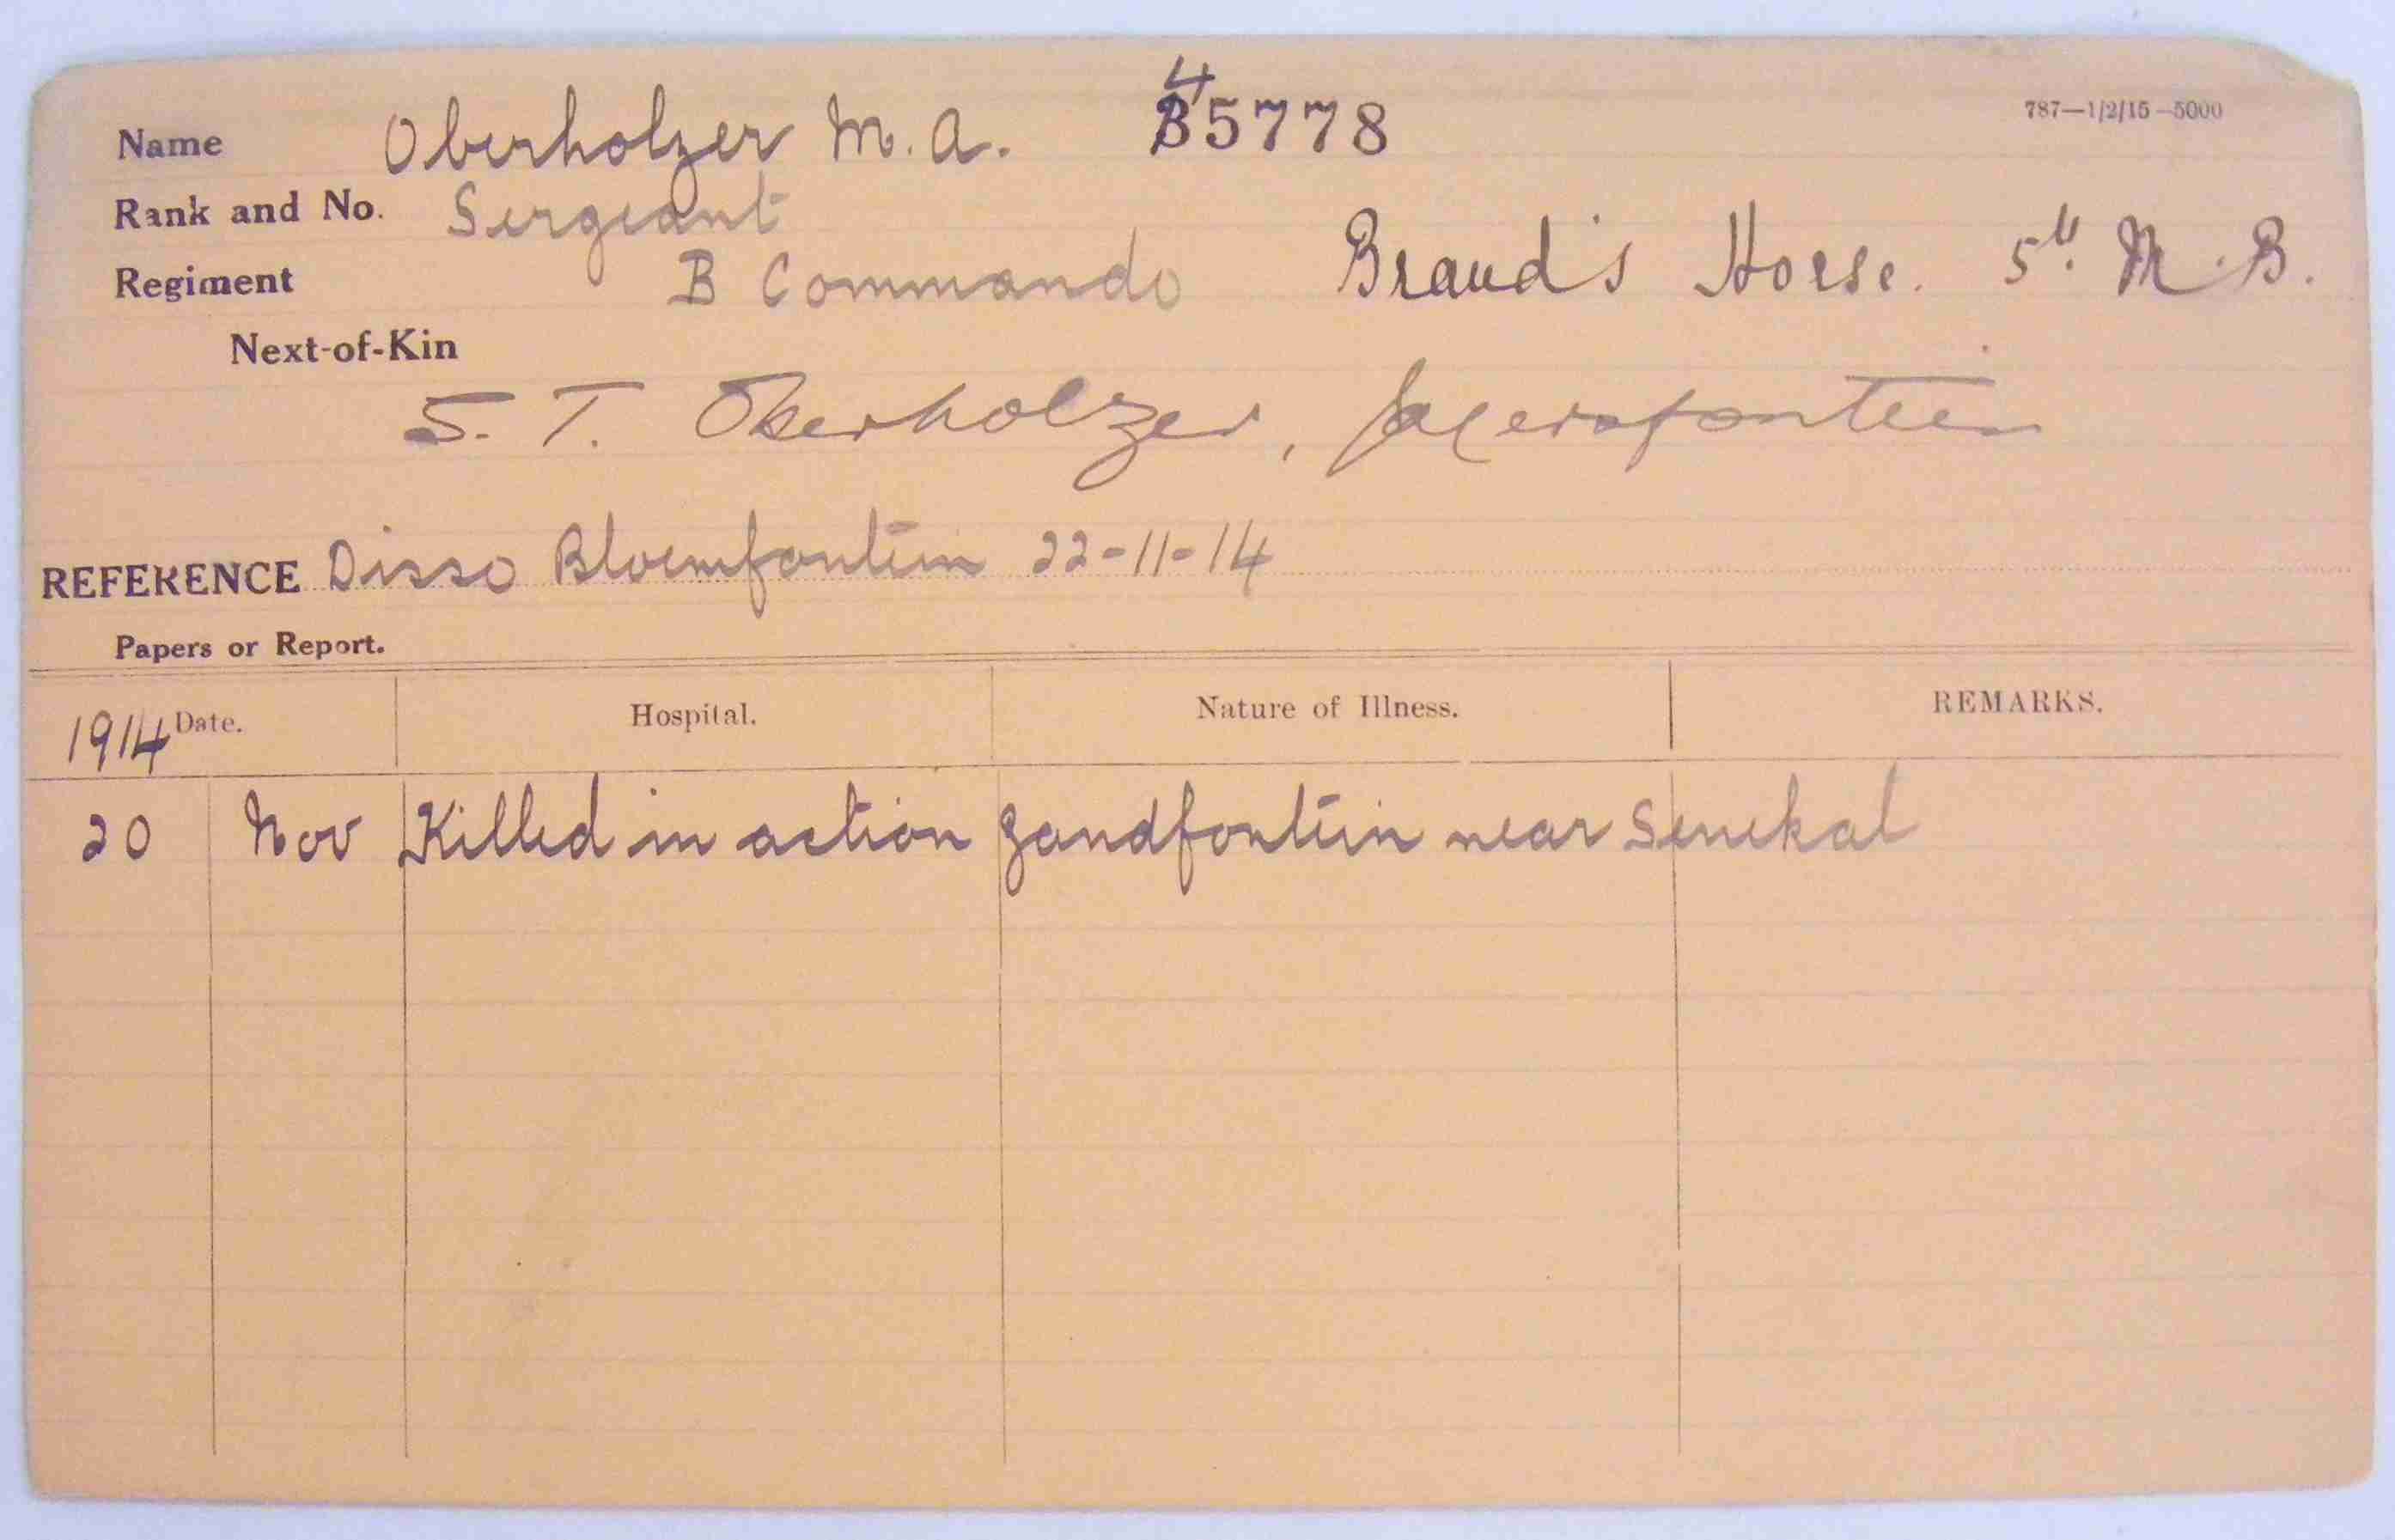 4
Name Oberholzer M. A. 35778 787—1/2/15—5000
Rank and No. Sergeant
Regiment B Commando Brand's Horse. 5th M. B.
Next-of-Kin
S. T. Oberholzer, Jagersfontein
REFERENCE Disso Bloemfontein 22-11-14
Papers or Report.
1914 Date. Hospital. Nature of Illness. REMARKS.
20 Nov Killed in action Zandfontein near Senekal